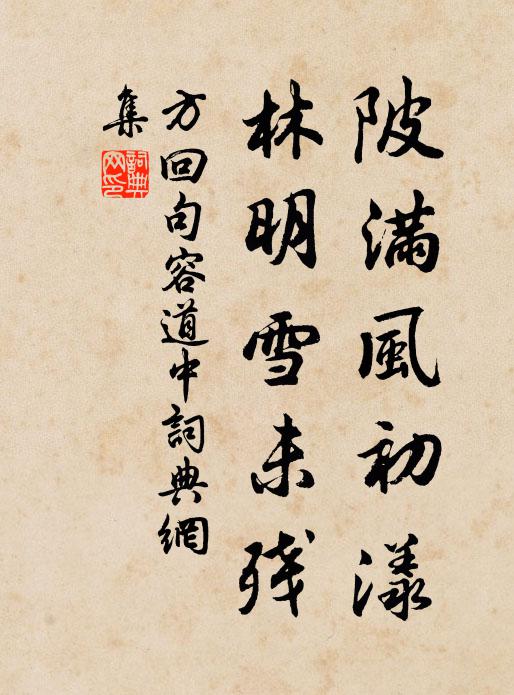 陂滿風初漾
林明雪未残
方回句容道中詞典網
集
詞典網印